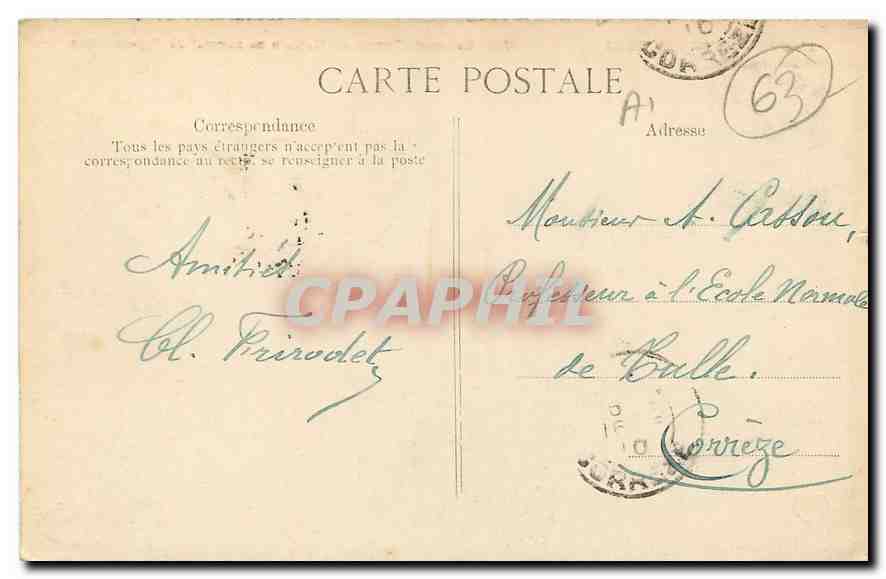 CARTE POSTALE
63
A1
Correspondance
Tous les pays étrangers n'acceptent pas la
correspondance au recto, se renseigner à la poste
Adresse
Amitiés
Cl.
Monsieur A. Cassou,
Professeur à l'Ecole Normale
de Tulle.
Corrèze
CPAPHIL
CORRÈZE
CORRÈZE